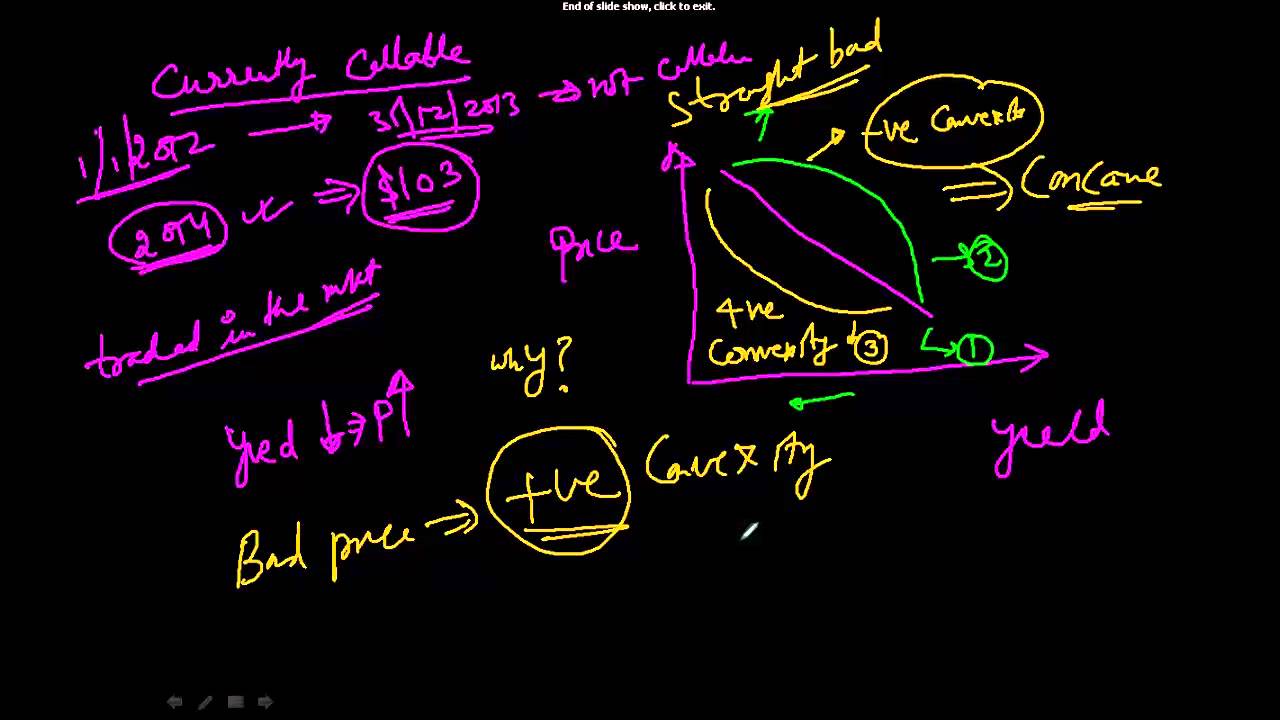 End of slide show, click to exit.
Currently Callable
1/1/2012 → 31/12/2013 → not callable
2014 ⇒ $103
traded in the mkt
Yied ↓ ⇒ P↑
Bad price ⇒ +ve Convexity
why?
Straight bad
-ve Convexity
⇒ Concave
Price
② 
+ve
Convexity ③
①
yield